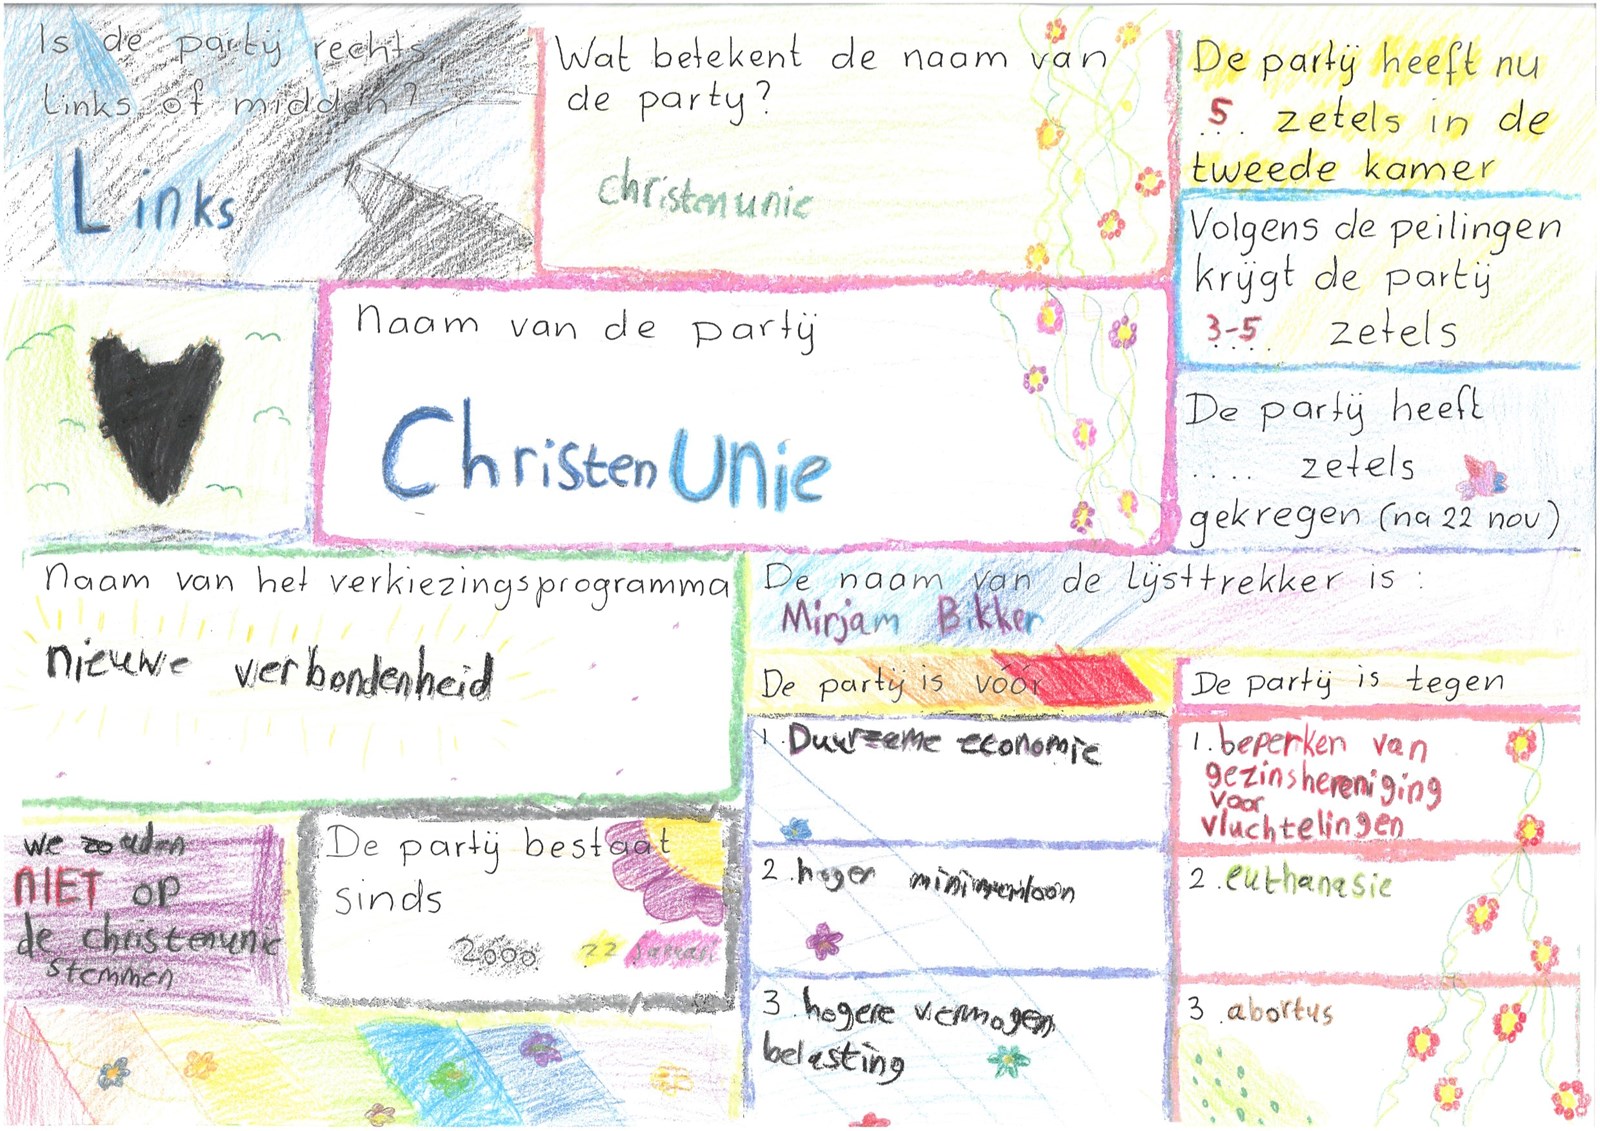 Is de partij rechts,
links of midden?
Links
Wat betekent de naam van
de party?
christenunie
De partij heeft nu
.5.. zetels in de
tweede kamer
Volgens de peilingen
krijgt de partij
3-5 zetels
De partij heeft
.... zetels
gekregen (na 22 nov)
Naam van de partij
ChristenUnie
Naam van het verkiezingsprogramma
nieuwe verbondenheid
De naam van de lijsttrekker is:
Mirjam Bikker
De partij is vóór
1. Duurzame economie
2. hoger minimumloon
3. hogere vermogen
belasting
De partij is tegen
1. beperken van
gezinshereniging
voor
vluchtelingen
2. euthanasie
3. abortus
we zouden
NIET op
de christenunie
stemmen
De partij bestaat
sinds
2000 22 januari